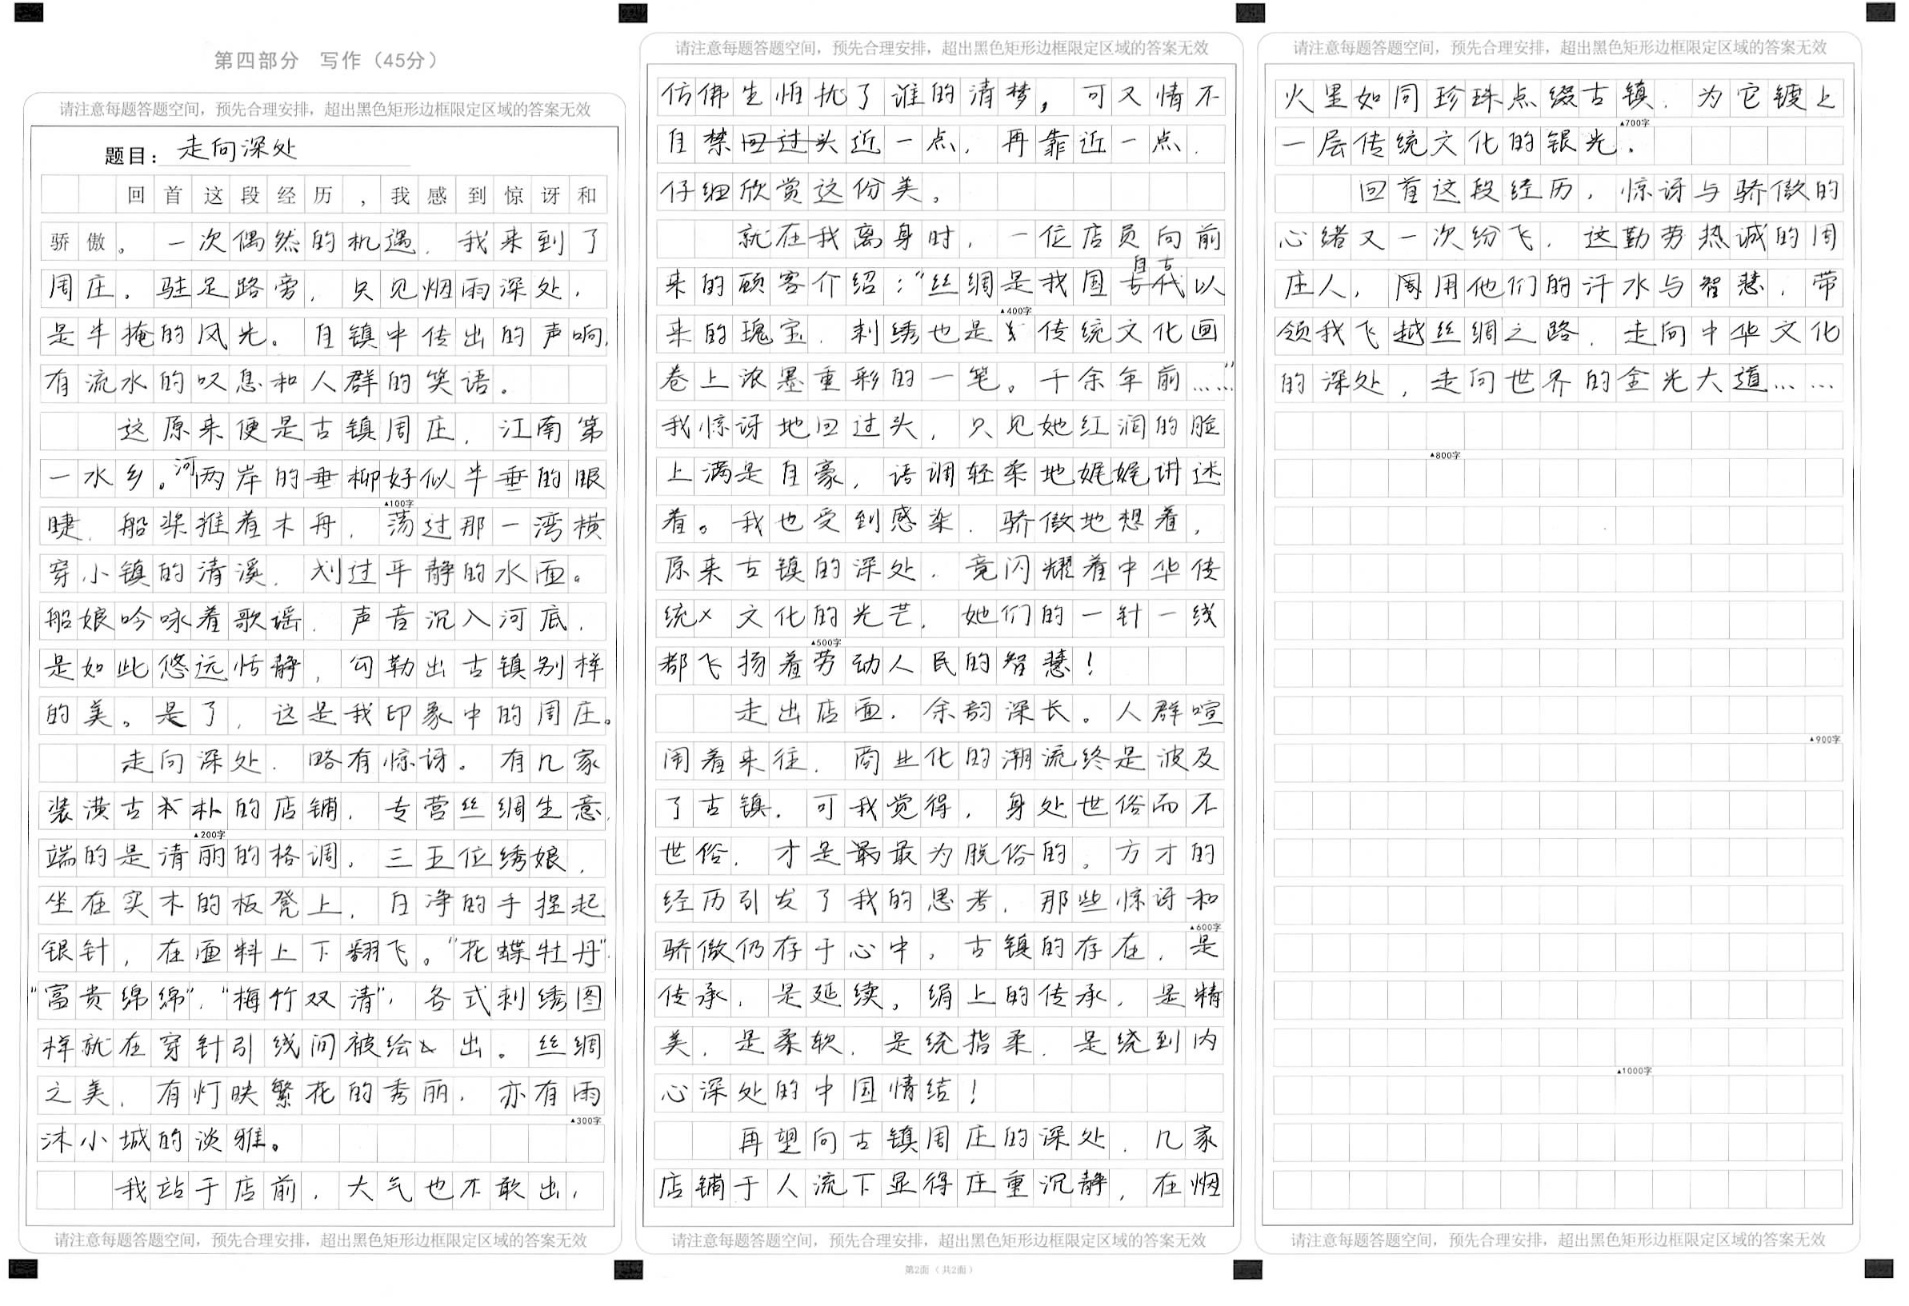 第四部分 写作（45分）
请注意每题答题空间，预先合理安排，超出黑色矩形边框限定区域的答案无效
题目：走向深处
回首这段经历，我感到惊讶和
骄傲。一次偶然的机遇，我来到了
周庄。驻足路旁，只见烟雨深处，
是半掩的风光。自镇中传出的声响，
有流水的叹息和人群的笑语。
这原来便是古镇周庄，江南第
一水乡。河两岸的垂柳好似半垂的眼
睫，船桨推着木舟，荡过那一湾横
▲100字
穿小镇的清溪，划过平静的水面。
船娘吟咏着歌谣，声音沉入河底，
是如此悠远恬静，勾勒出古镇别样
的美。是了，这是我印象中的周庄。
走向深处，略有惊讶。有几家
装潢古朴的店铺，专营丝绸生意，
▲200字
端的是清丽的格调，三五位绣娘，
坐在实木的板凳上，白净的手捏起
银针，在面料上下翻飞。“花蝶牡丹”
“富贵绵绵”，“梅竹双清”，各式刺绣图
样就在穿针引线间被绘出。丝绸
之美，有灯映繁花的秀丽，亦有雨
▲300字
沐小城的淡雅。
我站于店前，大气也不敢出，
请注意每题答题空间，预先合理安排，超出黑色矩形边框限定区域的答案无效
请注意每题答题空间，预先合理安排，超出黑色矩形边框限定区域的答案无效
仿佛生怕扰了谁的清梦，可又情不
自禁近一点，再靠近一点，
仔细欣赏这份美。
就在我离身时，一位店员向前
来的顾客介绍：“丝绸是我国自古以
来的瑰宝，刺绣也是传统文化画
▲400字
卷上浓墨重彩的一笔。千余年前……”
我惊讶地回过头，只见她红润的脸
上满是自豪，语调轻柔地娓娓讲述
着。我也受到感染，骄傲地想着，
原来古镇的深处，竟闪耀着中华传
统文化的光芒，她们的一针一线
▲500字
都飞扬着劳动人民的智慧！
走出店面，余韵深长。人群喧
闹着来往，商业化的潮流终是波及
了古镇，可我觉得，身处世俗而不
世俗，才是最为脱俗的。方才的
经历引发了我的思考，那些惊讶和
▲600字
骄傲仍存于心中，古镇的存在，是
传承，是延续。绢上的传承，是精
美，是柔软，是绕指柔，是绕到内
心深处的中国情结！
再望向古镇周庄的深处，几家
店铺于人流下显得庄重沉静，在烟
请注意每题答题空间，预先合理安排，超出黑色矩形边框限定区域的答案无效
第2面（共2面）
请注意每题答题空间，预先合理安排，超出黑色矩形边框限定区域的答案无效
火里如同珍珠点缀古镇，为它镀上
▲700字
一层传统文化的银光。
回首这段经历，惊讶与骄傲的
心绪又一次纷飞，这勤劳热诚的周
庄人，用他们的汗水与智慧，带
领我飞越丝绸之路，走向中华文化
的深处，走向世界的金光大道……
▲800字
▲900字
▲1000字
请注意每题答题空间，预先合理安排，超出黑色矩形边框限定区域的答案无效